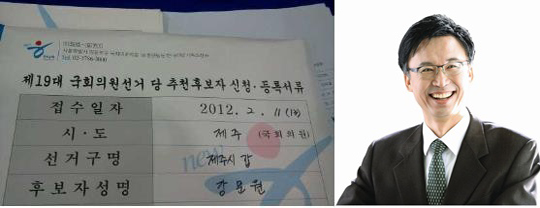 Tel. 02-3786-3000
제19대 국회의원선거 당 추천후보자 신청·등록서류
접수일자 2012. 2. 11
시·도 제주 (국회의원)
선거구명 제주시 갑
후보자성명 강문원
new